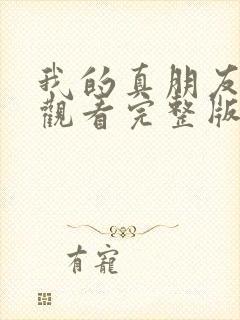 我的真朋友
觀看完整版
有寵